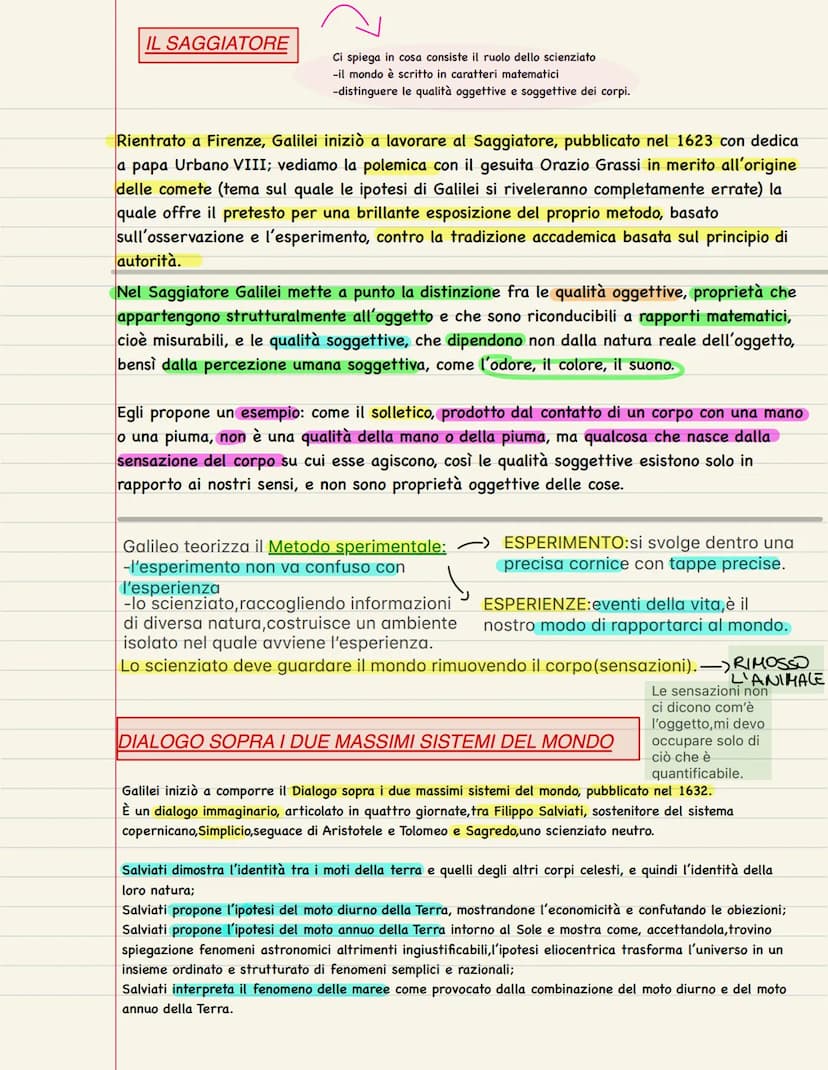 IL SAGGIATORE
Ci spiega in cosa consiste il ruolo dello scienziato
-il mondo è scritto in caratteri matematici
-distinguere le qualità oggettive e soggettive dei corpi.
Rientrato a Firenze, Galilei iniziò a lavorare al Saggiatore, pubblicato nel 1623 con dedica
a papa Urbano VIII; vediamo la polemica con il gesuita Orazio Grassi in merito all'origine
delle comete (tema sul quale le ipotesi di Galilei si riveleranno completamente errate) la
quale offre il pretesto per una brillante esposizione del proprio metodo, basato
sull'osservazione e l'esperimento, contro la tradizione accademica basata sul principio di
autorità.
Nel Saggiatore Galilei mette a punto la distinzione fra le qualità oggettive, proprietà che
appartengono strutturalmente all'oggetto e che sono riconducibili a rapporti matematici,
cioè misurabili, e le qualità soggettive, che dipendono non dalla natura reale dell'oggetto,
bensì dalla percezione umana soggettiva, come l'odore, il colore, il suono.
Egli propone un esempio: come il solletico, prodotto dal contatto di un corpo con una mano
o una piuma, non è una qualità della mano o della piuma, ma qualcosa che nasce dalla
sensazione del corpo su cui esse agiscono, così le qualità soggettive esistono solo in
rapporto ai nostri sensi, e non sono proprietà oggettive delle cose.
Galileo teorizza il Metodo sperimentale:
-l'esperimento non va confuso con
l'esperienza
-lo scienziato,raccogliendo informazioni
di diversa natura,costruisce un ambiente
isolato nel quale avviene l'esperienza.
ESPERIMENTO:si svolge dentro una
precisa cornice con tappe precise.
ESPERIENZE:eventi della vita,è il
nostro modo di rapportarci al mondo.
Lo scienziato deve guardare il mondo rimuovendo il corpo(sensazioni).
RIMOSSO
L'ANIMALE
Le sensazioni non
ci dicono com'è
l'oggetto,mi devo
occupare solo di
ciò che è
quantificabile.
DIALOGO SOPRA I DUE MASSIMI SISTEMI DEL MONDO
Galilei iniziò a comporre il Dialogo sopra i due massimi sistemi del mondo, pubblicato nel 1632.
È un dialogo immaginario, articolato in quattro giornate,tra Filippo Salviati, sostenitore del sistema
copernicano,Simplicio,seguace di Aristotele e Tolomeo e Sagredo,uno scienziato neutro.
Salviati dimostra l'identità tra i moti della terra e quelli degli altri corpi celesti, e quindi l'identità della
loro natura;
Salviati propone l'ipotesi del moto diurno della Terra, mostrandone l'economicità e confutando le obiezioni;
Salviati propone l'ipotesi del moto annuo della Terra intorno al Sole e mostra come, accettandola,trovino
spiegazione fenomeni astronomici altrimenti ingiustificabili,l'ipotesi eliocentrica trasforma l'universo in un
insieme ordinato e strutturato di fenomeni semplici e razionali;
Salviati interpreta il fenomeno delle maree come provocato dalla combinazione del moto diurno e del moto
annuo della Terra.